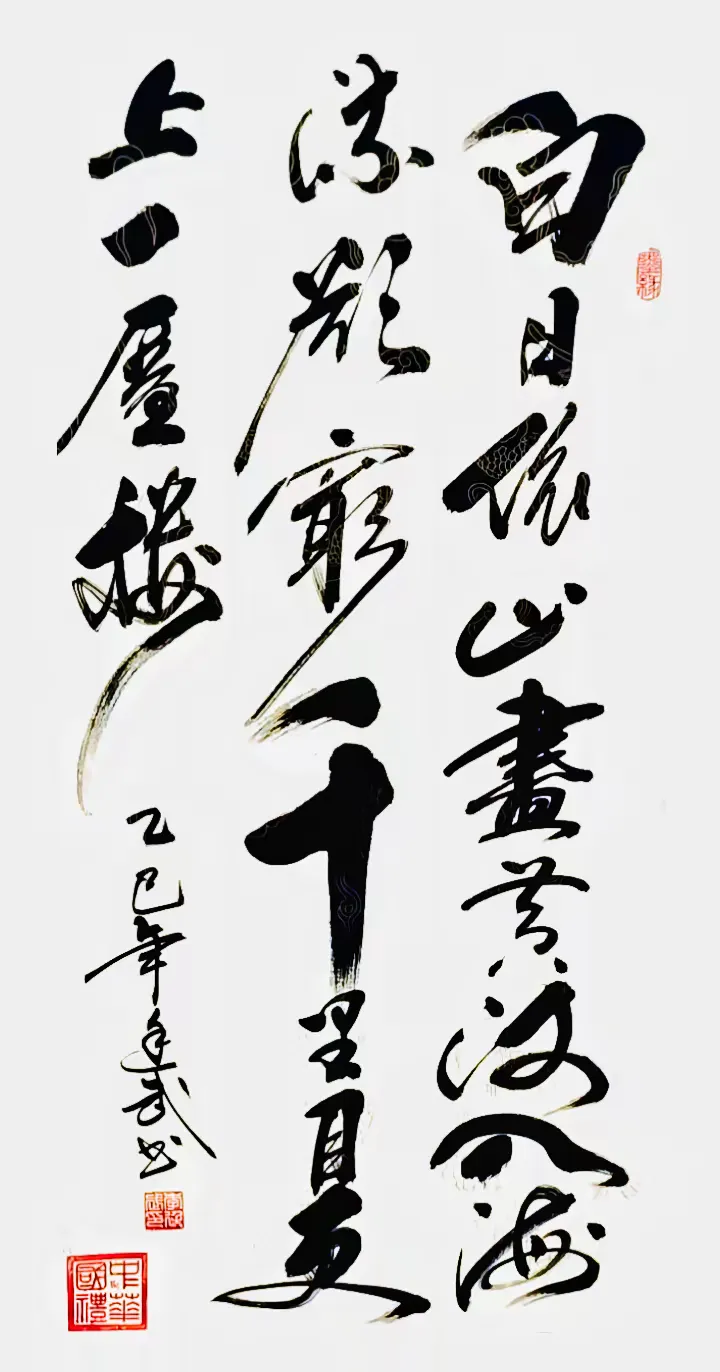 白日依山盡黄河入海
流欲窮千里目更
上一層樓
乙巳年武书
中華
國禮